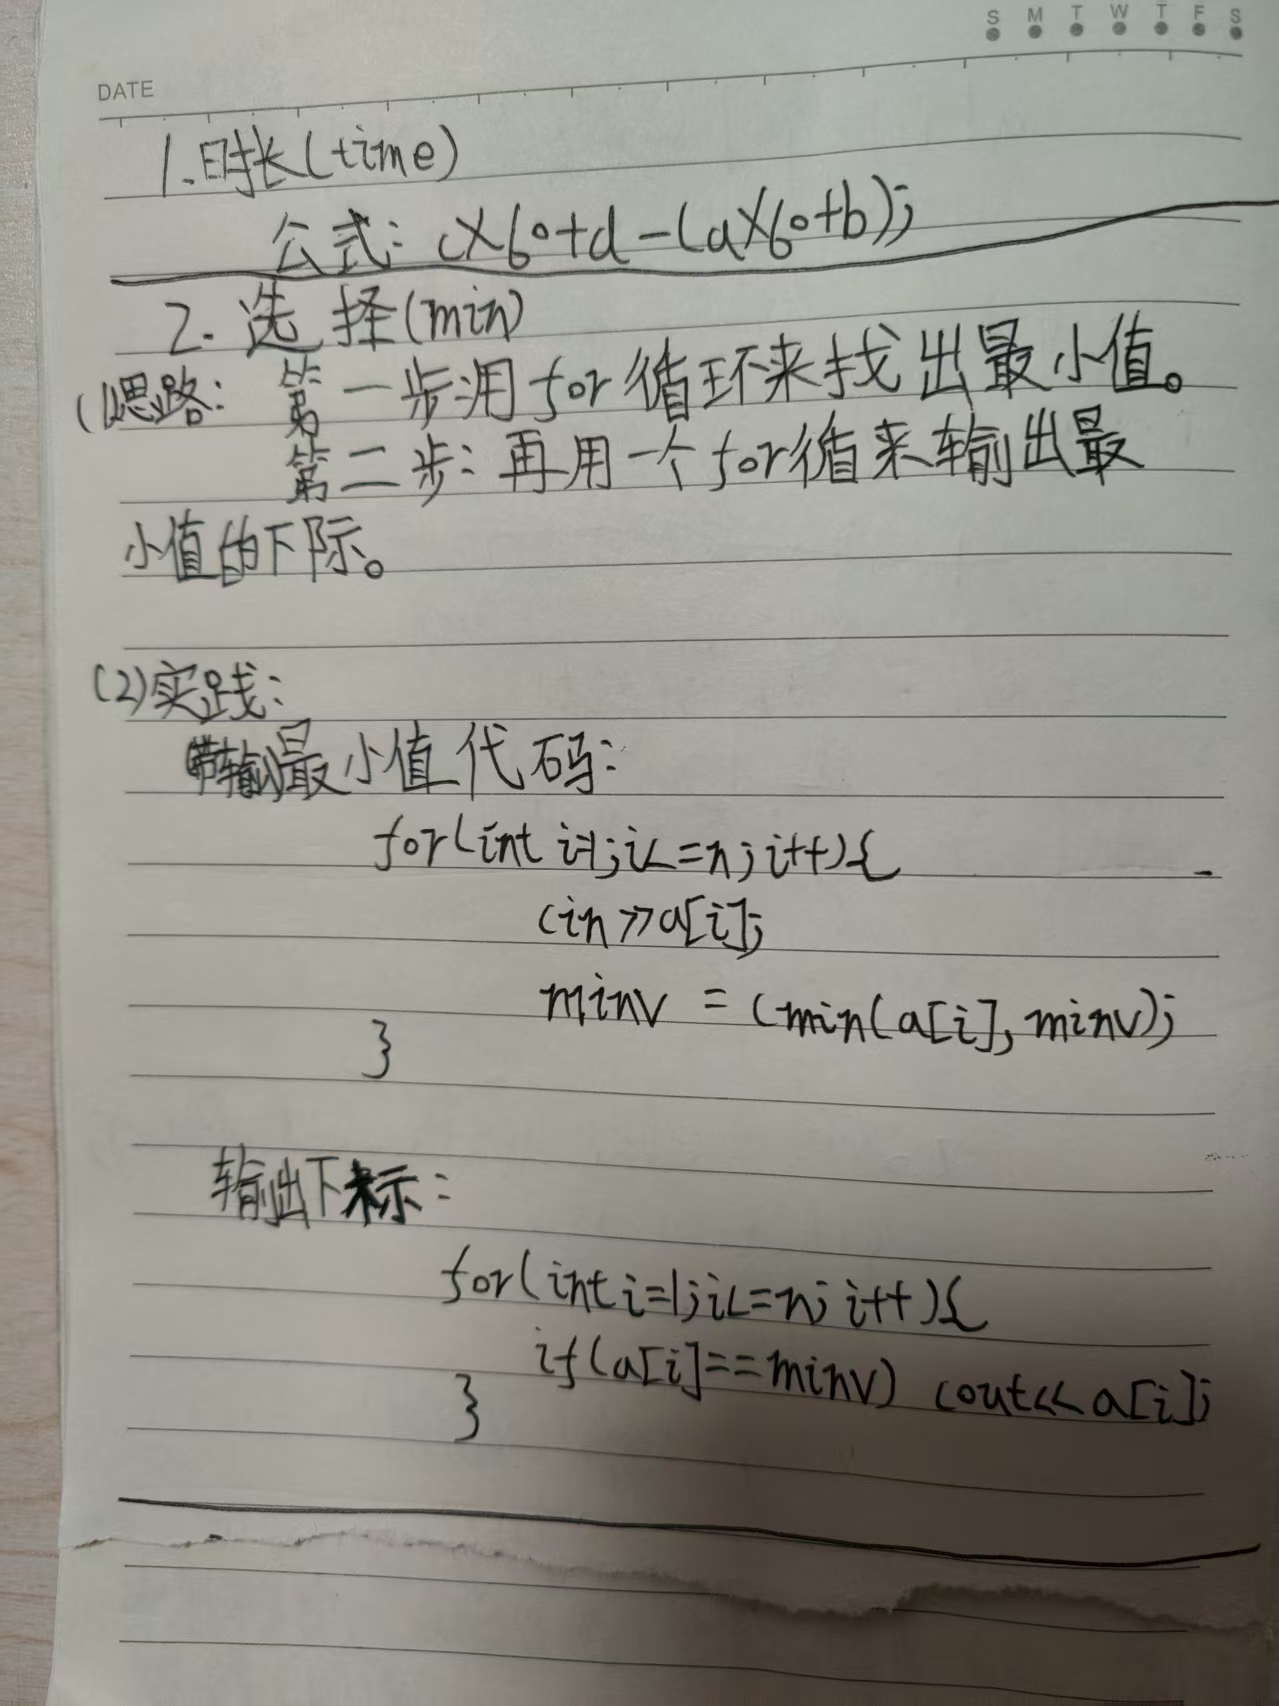 S M T W T F S
DATE
1.时长(time)
公式: c×60+d-(a×60+b);
2.选择(min)
(1)思路: 第一步:用for循环来找出最小值。
第二步:再用一个for循来输出最
小值的下际。
(2)实践:
带输最小值代码:
for(int i=1;i<=n;i++){
cin>>a[i];
minv = (min(a[i],minv);
}
输出下标:
for(int i=1;i<=n;i++){
if(a[i]==minv) cout<<a[i];
}